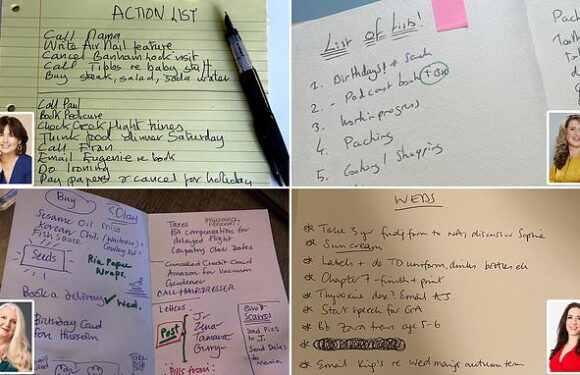 ACTION LIST
Call Mama
Write Air Mail feature
Cancel Banham lock visit
Call Tibbs re baby stuff
Buy steak, salad, soda water
Call Paul
Book Pedicure
Check Greek flight times
Think food dinner Saturday
Call Fran
Email Eugenie re book
Do Ironing
Pay papers & cancel for holiday
List of Lists!
1. Birthdays! +
2. - Podcast book
3. Work in progress
4. Packing
5. Cooking / Shopping
Pack
Buy
Clay
Sesame Oil miso
Korean Chili
Fish Sauce
Seeds
Rice Paper
Wraps
Book a delivery ✓ Wed.
Birthday Card
For Hussein
Taxes
BA Compensation for
delayed flight
Class Dates
Cancelled Credit Card
Amazon for Vacuum
Gardener
CALL HAIRDRESSER
Letters:
Post
Zena
Tamara
Pills from:
Send Pics
to J.
Send Dates
to Maria
WEDS
Take 3 yr funding form to NA, discuss w Sophie
Suncream
Labels + do TD uniform, drinks bottles etc
Chapter 7 - finish + print
Thyroxine dox? Email AJ
Start speech for GA
Bb Zara trans age 5-6
Email King's re Wed mornings autumn term